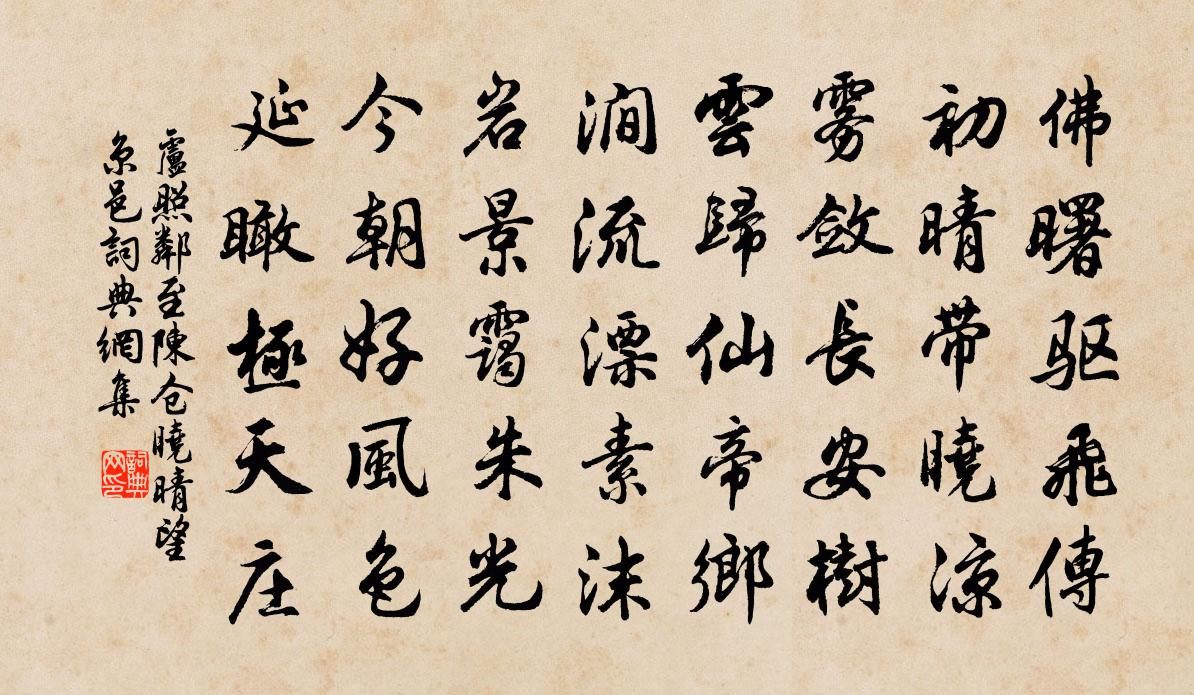 佛曙驱飛傳
初晴带曉涼
雾敛長安樹
雲歸仙帝鄉
澗流漂素沫
岩景靄朱光
今朝好風色
延瞰極天庄
盧照鄰至陳仓曉晴望
京邑詞典網集
詞典网印